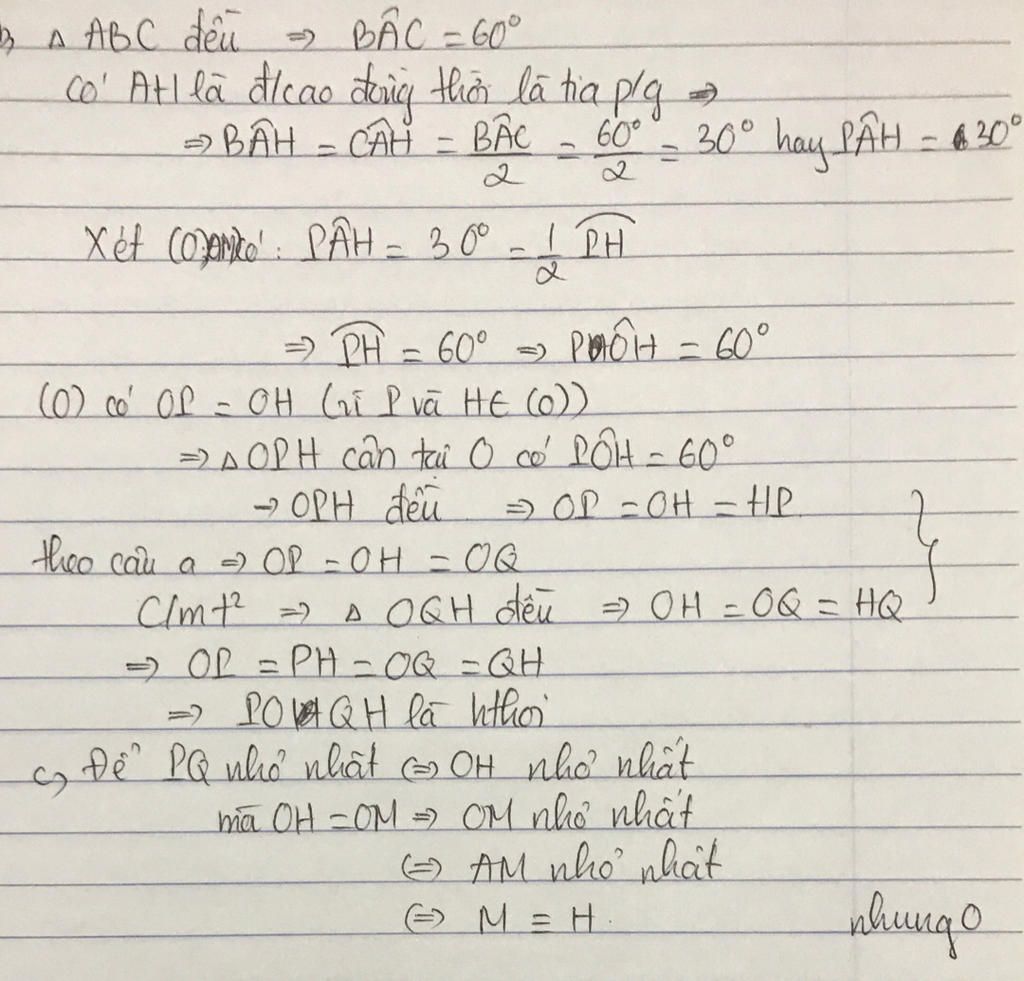 b, Δ ABC đều ⇒ BÂC = 60°
có AH là đ/cao đồng thời là tia p/g ⇒
⇒ BÂH = CÂH = BÂC/2 = 60°/2 = 30° hay PÂH = 30°
Xét (O; OM) có: PÂH = 30° = 1/2 P͡H
⇒ P͡H = 60° ⇒ PÔH = 60°
(O) có OP = OH (vì P và H ∈ (O))
⇒ Δ OPH cân tại O có PÔH = 60°
→ OPH đều ⇒ OP = OH = HP
theo câu a ⇒ OP = OH = OQ
C/mt² ⇒ Δ OQH đều ⇒ OH = OQ = HQ
⇒ OP = PH = OQ = QH
⇒ POQH là hthoi
c, Để PQ nhỏ nhất ⇔ OH nhỏ nhất
mà OH = OM ⇒ OM nhỏ nhất
⇔ AM nhỏ nhất
⇔ M ≡ H.
nhungO